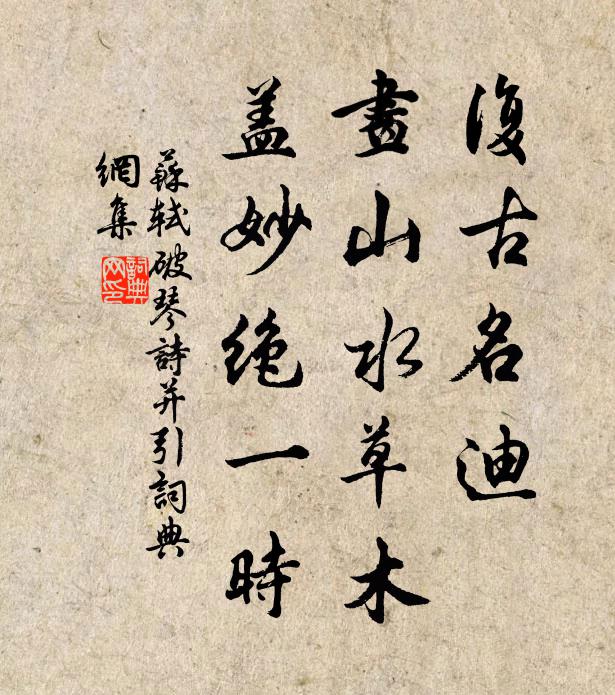 復古名迪
畫山水草木
盖妙绝一時
蘇軾破琴詩并引詞典
網集
詞典
网印